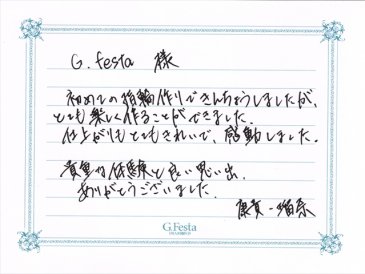 G. festa 様
初めての指輪作りできんちょうしましたが、
とても楽しく作ることができました。
仕上がりもとてもきれいで、感動しました。
貴重な体験と良い思い出、
ありがとうございました。
康貴・瑠奈
G.Festa